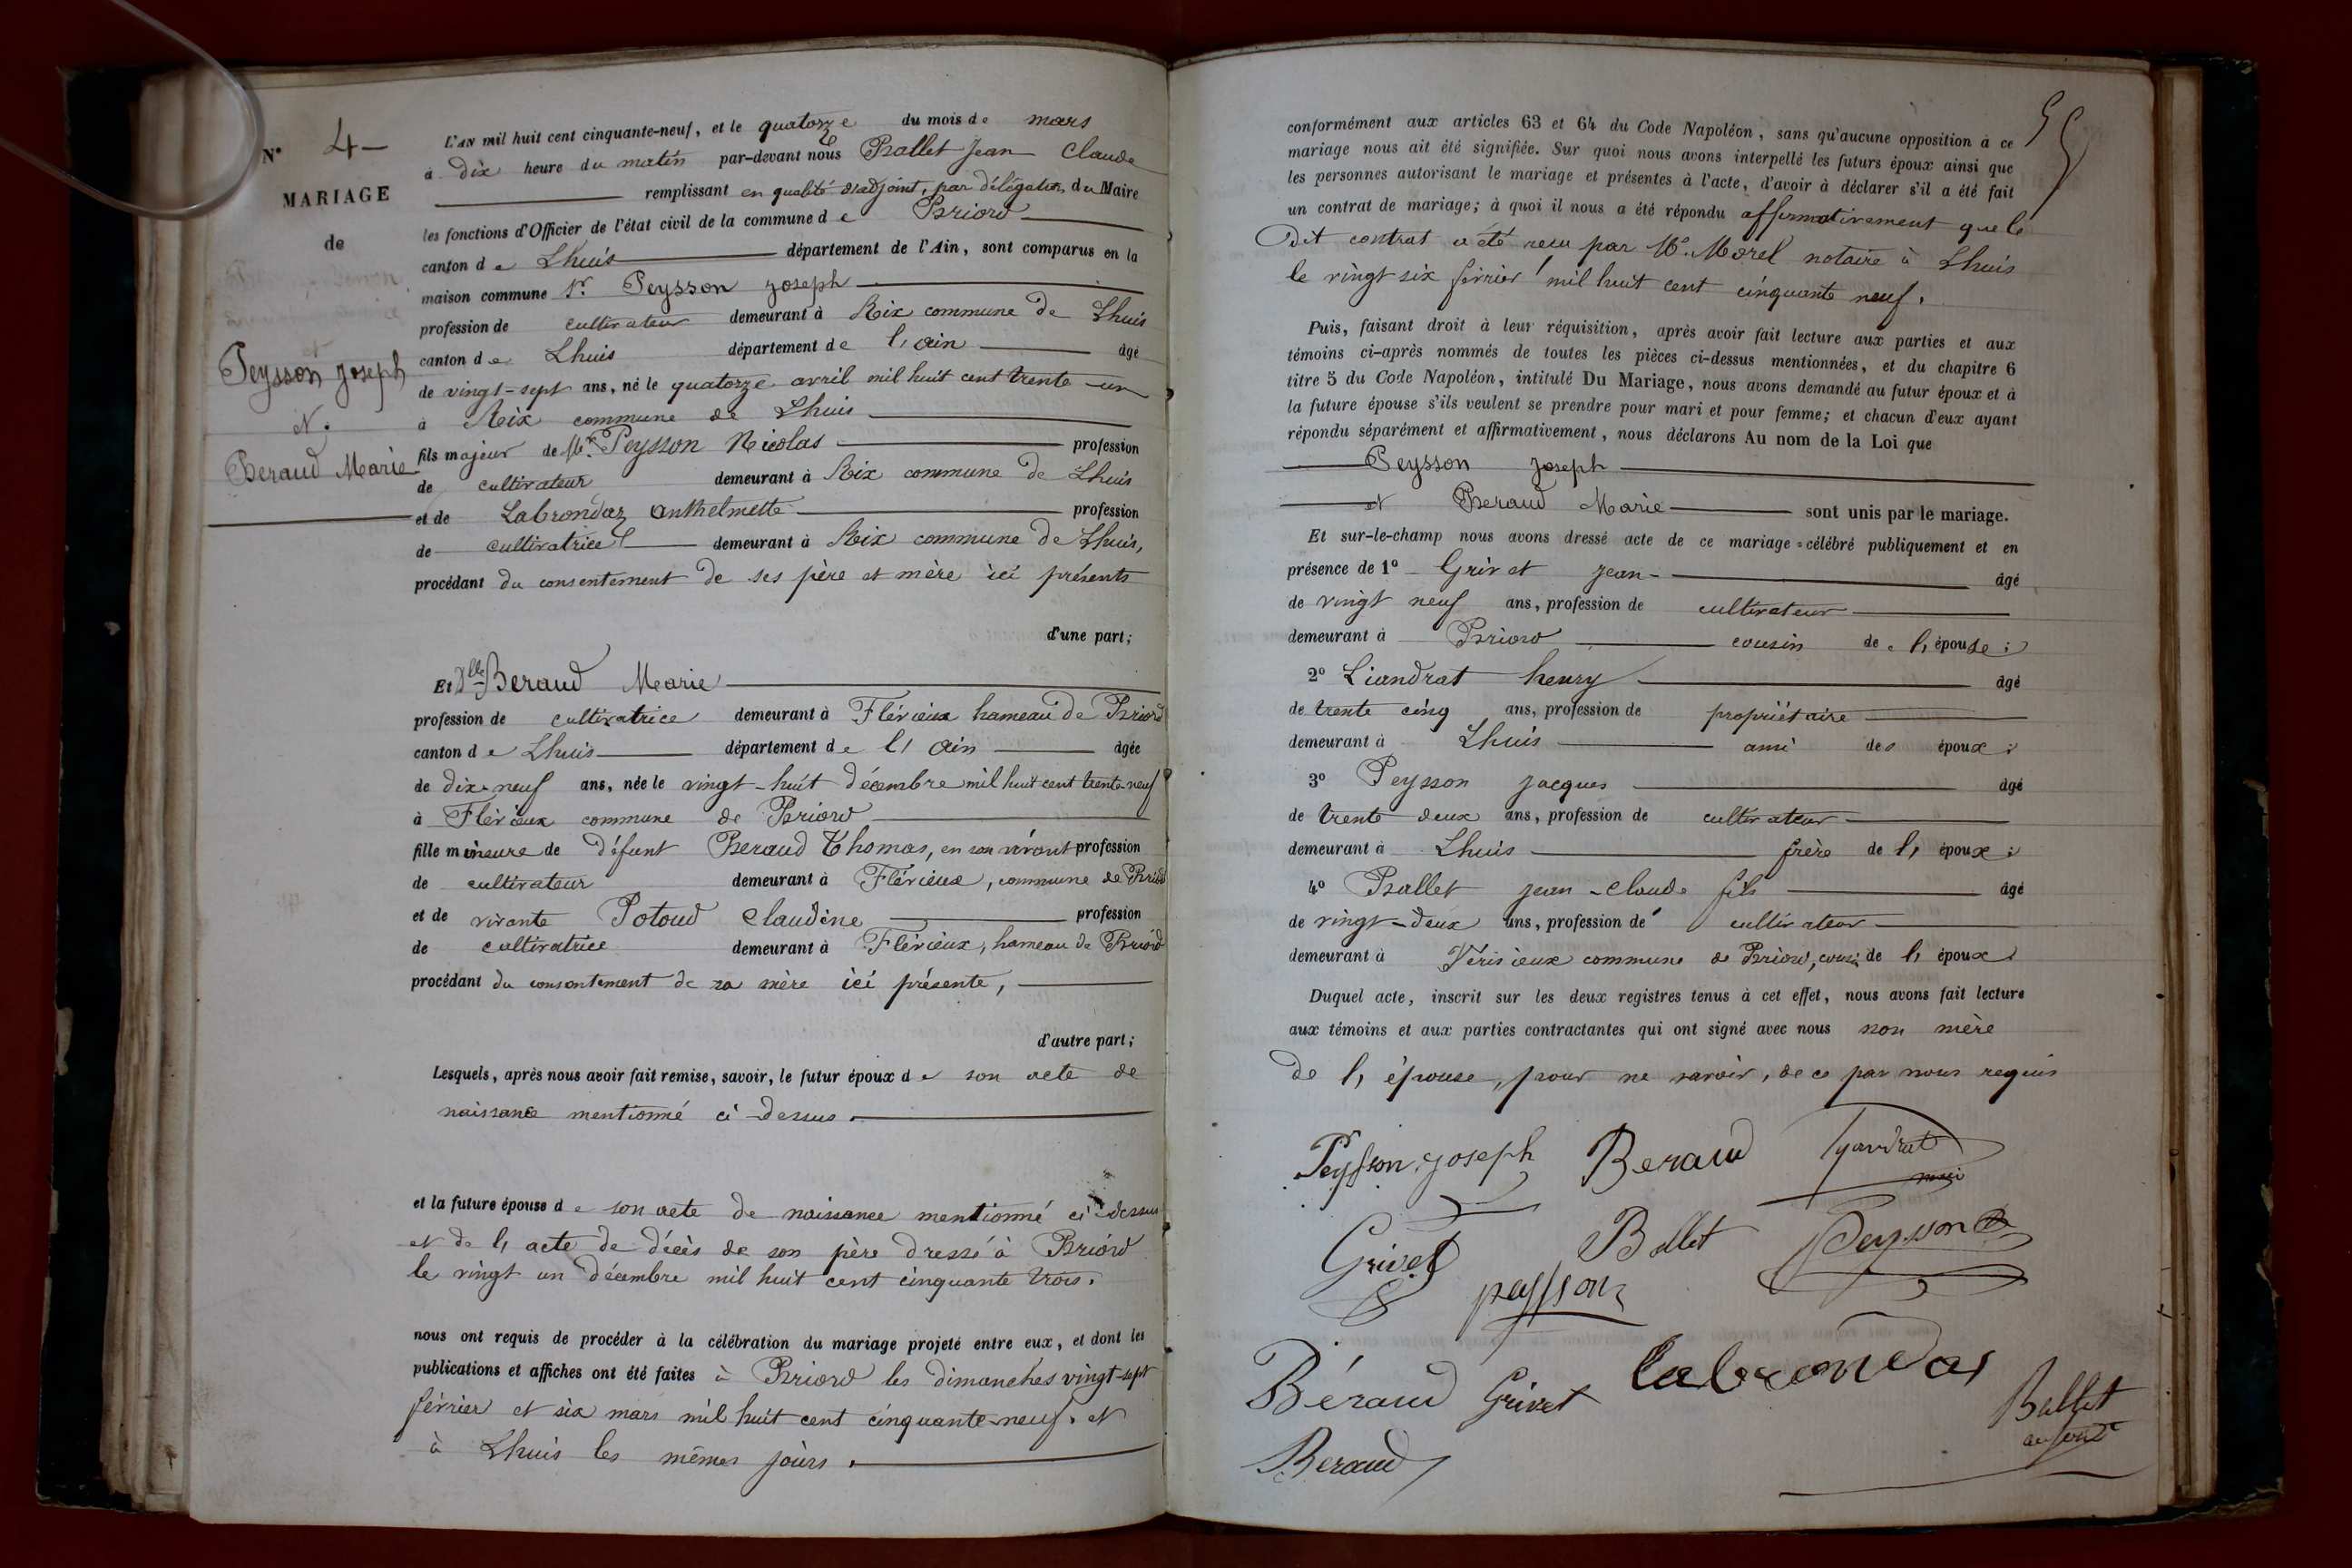 N° 4
MARIAGE
de
Peysson Joseph
et
Beraud Marie
L'AN mil huit cent cinquante-neuf, et le quatorze du mois de mars
à dix heure du matin par-devant nous Ballet Jean Claude
remplissant en qualité d'adjoint, par délégation du Maire
les fonctions d'Officier de l'état civil de la commune de Briord
canton de Lhuis département de l'Ain, sont comparus en la
maison commune Sr. Peysson Joseph
profession de cultivateur demeurant à Rix commune de Lhuis
canton de Lhuis département de l'ain âgé
de vingt-sept ans, né le quatorze avril mil huit cent trente-un
à Rix commune de Lhuis
fils majeur de Mr. Peysson Nicolas profession
de cultivateur demeurant à Rix commune de Lhuis
et de Labrondaz Anthelmette profession
de cultivatrice demeurant à Rix commune de Lhuis,
procédant du consentement de ses père et mère ici présents
d'une part;
Et Dlle Beraud Marie
profession de cultivatrice demeurant à Flérieux hameau de Briord
canton de Lhuis département de l'Ain âgée
de dix-neuf ans, née le vingt-huit décembre mil huit cent trente-neuf
à Flérieux commune de Briord
fille mineure de défunt Beraud Thomas, en son vivant profession
de cultivateur demeurant à Flérieux, commune de Briord
et de vivante Potoud Claudine profession
de cultivatrice demeurant à Flérieux, hameau de Briord
procédant du consentement de sa mère ici présente,
d'autre part;
Lesquels, après nous avoir fait remise, savoir, le futur époux de son acte de
naissance mentionné ci-dessus.
et la future épouse de son acte de naissance mentionné ci-dessus
et de l'acte de décès de son père dressé à Briord
le vingt un décembre mil huit cent cinquante trois.
nous ont requis de procéder à la célébration du mariage projeté entre eux, et dont les
publications et affiches ont été faites à Briord les dimanches vingt-sept
février et six mars mil huit cent cinquante-neuf. et
à Lhuis les mêmes jours.
55
conformément aux articles 63 et 64 du Code Napoléon, sans qu'aucune opposition à ce
mariage nous ait été signifiée. Sur quoi nous avons interpellé les futurs époux ainsi que
les personnes autorisant le mariage et présentes à l'acte, d'avoir à déclarer s'il a été fait
un contrat de mariage; à quoi il nous a été répondu affirmativement que le
dit contrat a été reçu par Me. Morel notaire à Lhuis
le vingt six février mil huit cent cinquante neuf.
Puis, faisant droit à leur réquisition, après avoir fait lecture aux parties et aux
témoins ci-après nommés de toutes les pièces ci-dessus mentionnées, et du chapitre 6
titre 5 du Code Napoléon, intitulé Du Mariage, nous avons demandé au futur époux et à
la future épouse s'ils veulent se prendre pour mari et pour femme; et chacun d'eux ayant
répondu séparément et affirmativement, nous déclarons Au nom de la Loi que
Peysson Joseph
et Beraud Marie sont unis par le mariage.
Et sur-le-champ nous avons dressé acte de ce mariage célébré publiquement et en
présence de 1° Grivet Jean âgé
de vingt neuf ans, profession de cultivateur
demeurant à Briord cousin de l'épouse;
2° Liandrat henry âgé
de trente cinq ans, profession de propriétaire
demeurant à Lhuis ami des époux;
3° Peysson Jacques âgé
de trente deux ans, profession de cultivateur
demeurant à Lhuis frère de l'époux;
4° Ballet Jean-Claude fils âgé
de vingt-deux ans, profession de cultivateur
demeurant à Vérisieux commune de Briord, cousin de l'époux.
Duquel acte, inscrit sur les deux registres tenus à cet effet, nous avons fait lecture
aux témoins et aux parties contractantes qui ont signé avec nous non mère
de l'épouse, pour ne savoir, de ce par nous requis
Peysson Joseph Beraud Lyandrat
Grivet Ballet Peysson
peysson
Béraud Grivet labrondas Ballet
adjoint
Beraud